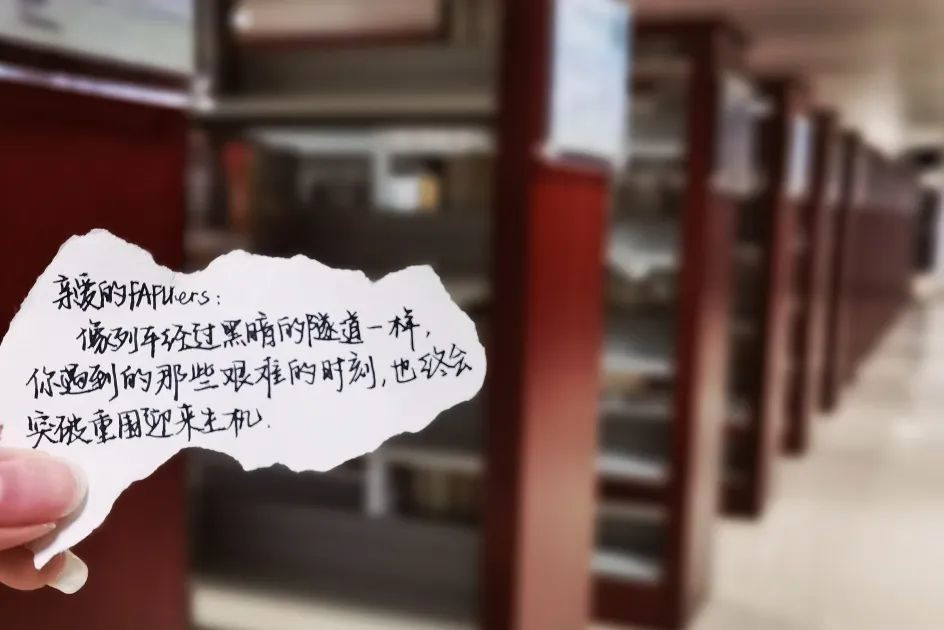 亲爱的FAFUers：
像列车经过黑暗的隧道一样，
你遇到的那些艰难的时刻，也终会
突破重围迎来生机.